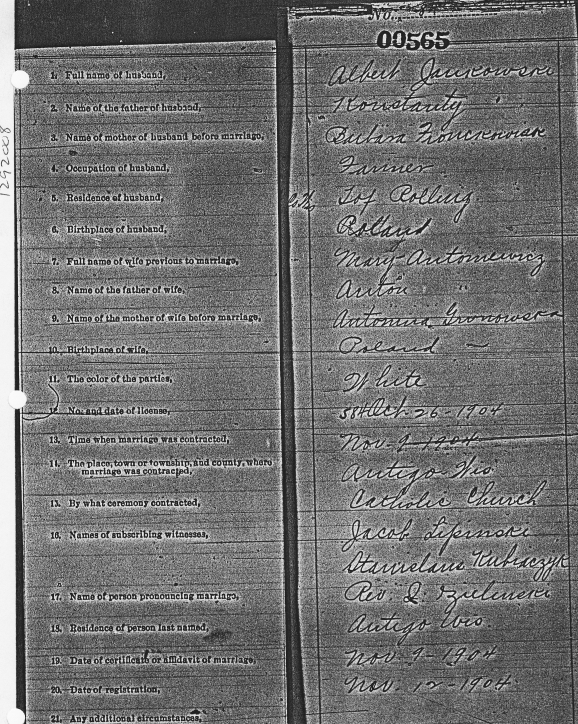 No.
00565
1292008
1. Full name of husband, Albert Jankowski
2. Name of the father of husband, Konstanty "
3. Name of mother of husband before marriage, Barbara
4. Occupation of husband, Farmer
5. Residence of husband, Tof Rolling
6. Birthplace of husband, Poland
7. Full name of wife previous to marriage, Mary Antoniewicz
8. Name of the father of wife, Anton "
9. Name of the mother of wife before marriage, Antonina Gronowska
10. Birthplace of wife, Poland —
11. The color of the parties, White
12. No. and date of license, 584 Oct-26-1904
13. Time when marriage was contracted, Nov-9-1904
14. The place, town or township, and county, where
marriage was contracted, Antigo Wis
15. By what ceremony contracted, Catholic Church
16. Names of subscribing witnesses, Jacob Lipinski
Stanislaus Kubiaczyk
17. Name of person pronouncing marriage, Rev. Dzielinski
18. Residence of person last named, Antigo Wis
19. Date of certificate or affidavit of marriage, Nov-9-1904
20. Date of registration, Nov. 12-1904
21. Any additional circumstances,